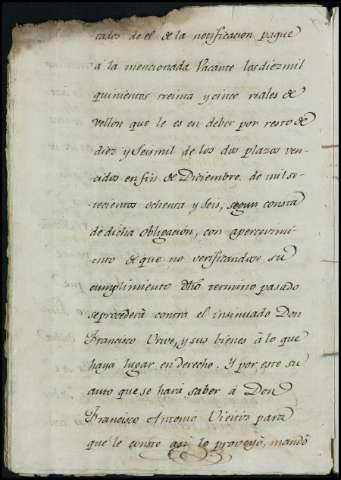 tados de el de la notificacion pague
a la mencionada Vacante los diez mil
quinientos treinta y cinco reales de
vellon que le es en deber por resto de
diez y seis mil de los dos plazos ven-
cidos en fin de Diciembre de mil se-
tecientos ochenta y seis, segun consta
de dicha obligacion, con apercivimi-
ento de que no verificandose su
cumplimiento dho termino pasado
se procederà contra el insinuado Don
Francisco Vrive, y sus bienes à lo que
haya lugar en derecho. Y por este su
auto que se harà saber à Don
Francisco Antonio para
que le conste asi lo proveyó, mandó